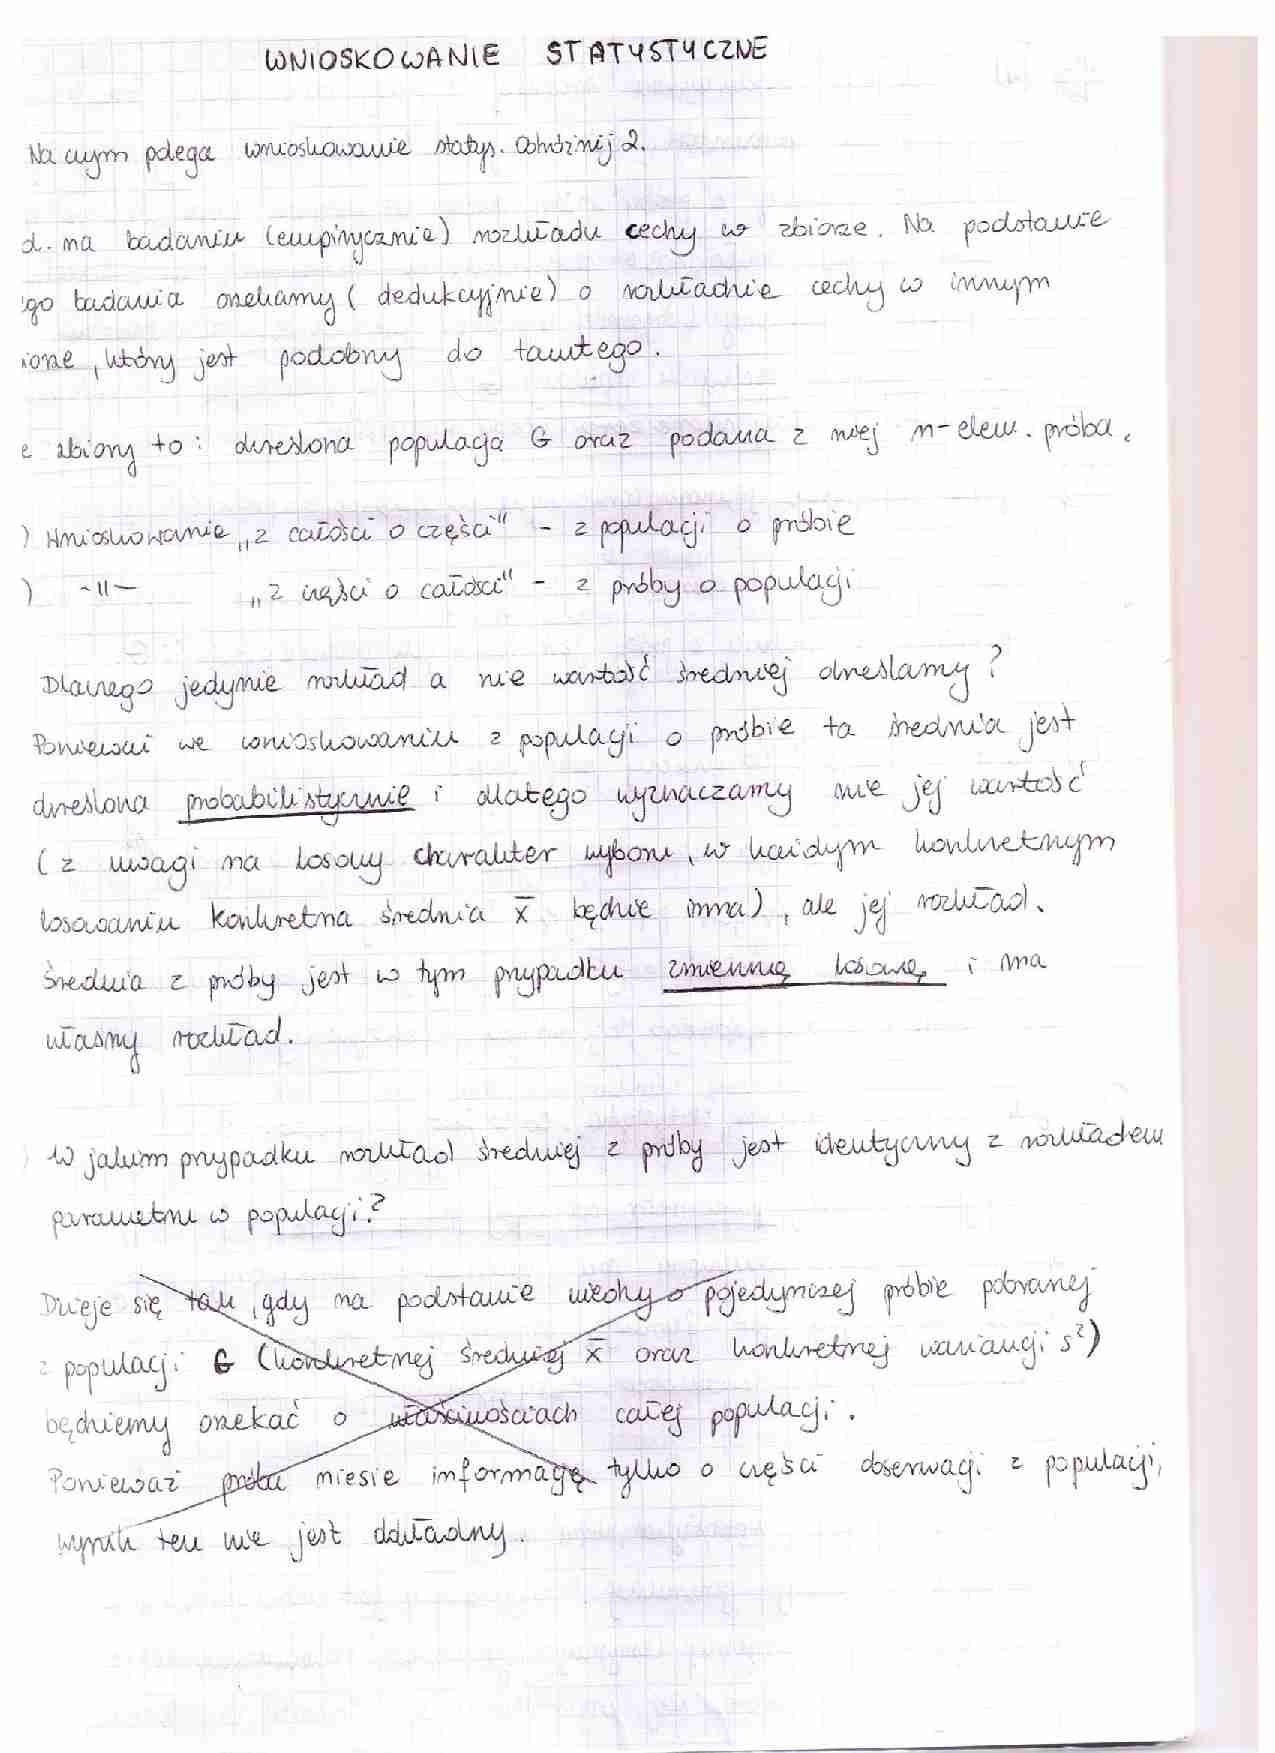 WNIOSKOWANIE STATYSTYCZNE
Na czym polega wnioskowanie statys. Odróżnij 2.
d. na badaniu (empirycznie) rozkładu cechy w zbiorze. Na podstawie
go badania orzekamy (dedukcyjnie) o rozkładzie cechy w innym
iorze, który jest podobny do tamtego.
e zbiory to: określona populacja G oraz podana z niej n-elem. próba.
) Wnioskowanie „z całości o części" - z populacji o próbie
) -"- „z części o całości" - z próby o populacji
Dlaczego jedynie rozkład a nie wartość średniej określamy?
Ponieważ we wnioskowaniu z populacji o próbie ta średnia jest
określona probabilistycznie i dlatego wyznaczamy nie jej wartość
(z uwagi na losowy charakter wyboru, w każdym konkretnym
losowaniu konkretna średnia x̄ będzie inna), ale jej rozkład.
Średnia z próby jest w tym przypadku zmienną losową, i ma
własny rozkład.
) W jakim przypadku rozkład średniej z próby jest identyczny z rozkładem
parametru w populacji?
Dzieje się tak, gdy na podstawie wiedzy o pojedynczej próbie pobranej
z populacji G (konkretnej średniej x̄ oraz konkretnej wariancji s²)
będziemy orzekać o właściwościach całej populacji.
Ponieważ próba niesie informację tylko o części obserwacji z populacji,
wynik ten nie jest dokładny.